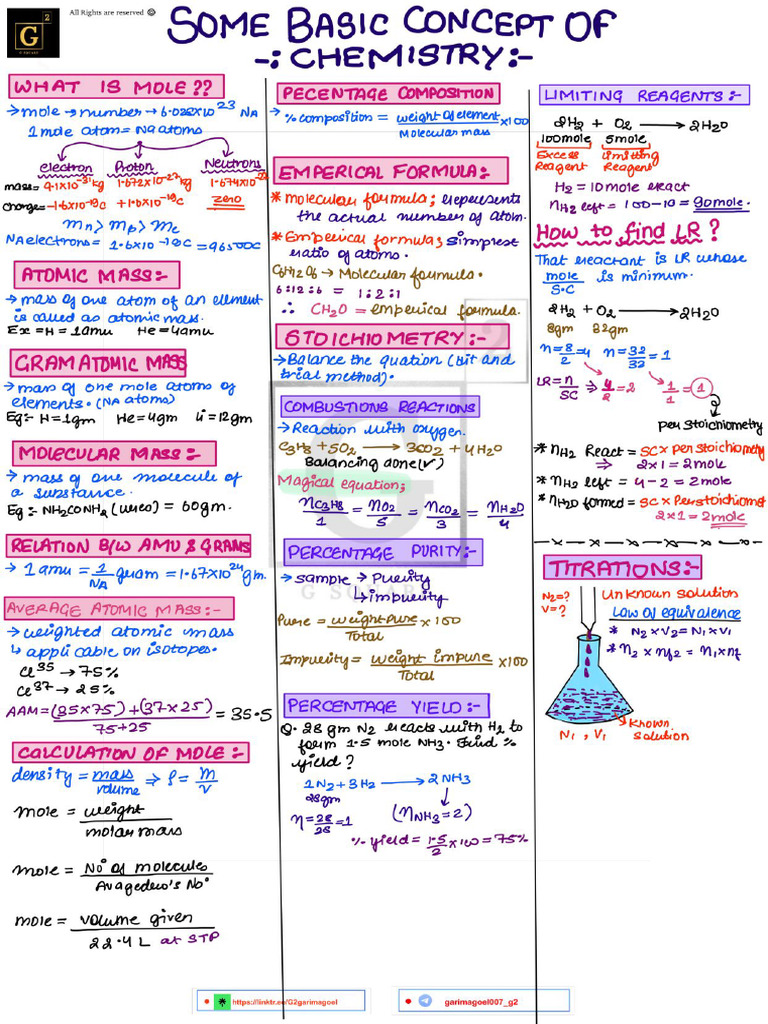 All Rights are reserved ©
G 2
G SQUARE
SOME BASIC CONCEPT OF
-: CHEMISTRY:-
WHAT IS MOLE??
→ mole → number → 6.026×10²³ NA
1 mole atom = NA atoms
electron Proton Neutrons
mass= 9.1×10⁻³¹ kg 1.672×10⁻²⁷ kg 1.674×10⁻²⁷
charge= -1.6×10⁻¹⁹C +1.6×10⁻¹⁹C zero
mn > mp > me
NA electrons = 1.6×10⁻¹⁹C = 96500C
ATOMIC MASS:-
→ mass of one atom of an element
is called as atomic mass.
Ex = H = 1amu He = 4amu
GRAM ATOMIC MASS
→ mass of one mole atoms of
elements. (NA atoms)
Eg:- H = 1gm He = 4gm Li = 12gm
MOLECULAR MASS:-
→ mass of one molecule of
a substance.
Eg:- NH₂CONH₂ (ureo) = 60gm.
RELATION B/W AMU & GRAMS
→ 1 amu = 1/NA gram = 1.67×10²⁴ gm.
AVERAGE ATOMIC MASS:-
→ weighted atomic mass
↳ applicable on isotopes.
Cl³⁵ → 75%
Cl³⁷ → 25%
AAM = (35×75) + (37×25) / 75+25 = 35.5
CALCULATION OF MOLE:-
density = mass/volume ⇒ ρ = m/v
mole = weight / molar mass
mole = No° of molecules / Avagedero's No°
mole = volume given / 22.4 L at STP
PECENTAGE COMPOSITION
→ % composition = weight of element / Molecular mass ×100
EMPERICAL FORMULA:
* molecular formula; represents
the actual number of atom.
* Emperical formula; simplest
ratio of atoms.
C₆H₁₂O₆ → Molecular formula.
6:12:6 = 1:2:1
∴ CH₂O = emperical formula.
STOICHIOMETRY:-
→ Balance the quation (hit and
trial method).
COMBUSTIONS REACTIONS
→ Reaction with oxygen.
C₃H₈ + 5O₂ → 3CO₂ + 4H₂O
Balancing done (✓)
Magical equation;
nC₃H₈/1 = nO₂/5 = nCO₂/3 = nH₂O/4
PERCENTAGE PURITY:-
→ sample → Purity
↳ impurity
G SQUARE
Pure = weight pure / Total ×100
Impurity = weight impure / Total ×100
PERCENTAGE YIELD:-
Q. 28 gm N₂ reacts with H₂ to
form 1.5 mole NH₃. Find %
yield?
1N₂ + 3H₂ → 2NH₃
28gm
n = 28/28 = 1 (nNH₃ = 2)
% yield = 1.5/2 ×100 = 75%
LIMITING REAGENTS:-
2H₂ + O₂ → 2H₂O
100mole 5mole
Excess Reagent Limiting Reagent
H₂ = 10 mole react
nH₂ left = 100 - 10 = 90mole.
HOW to find LR?
That reactant is LR whose
mole/S.C is minimum.
2H₂ + O₂ → 2H₂O
8gm 32gm
n = 8/2 = 4 n = 32/32 = 1
LR = n/SC ⇒ 4/2 = 2 1/1 = 1
per stoichiometry
* nH₂ React = SC × per stoichiometry
⇒ 2×1 = 2mole
* nH₂ left = 4 - 2 = 2mole
* nH₂O formed = SC × Per stoichiomet
2×1 = 2mole
TITRATIONS:-
N₂=? Unknown solution
V=? Law of equivalence
* N₂×V₂ = N₁×V₁
* n₂×nf₂ = n₁×nf
N₁, V₁ Known solution
https://linktr.ee/G2garimagoel
garimagoel007_g2